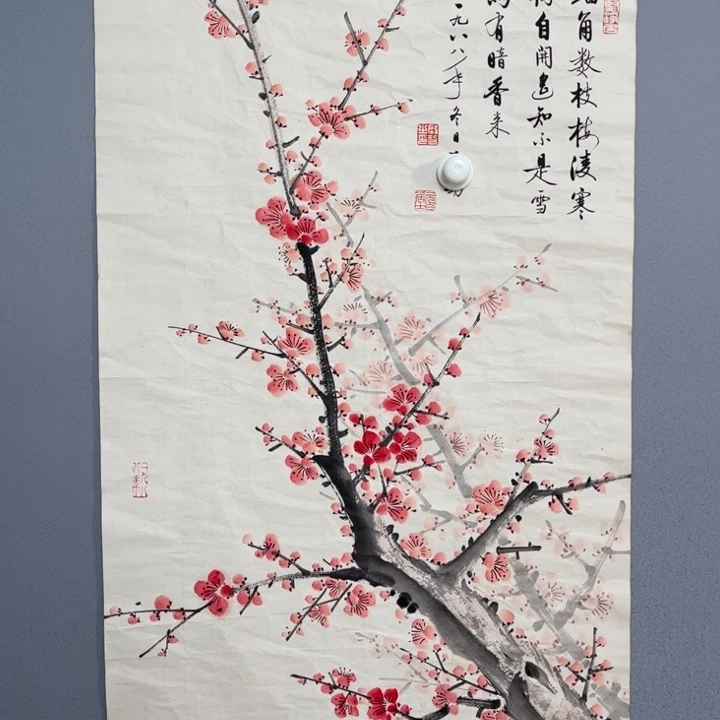 角数枝梅凌寒
自開遥知不是雪
為有暗香来
一九八八年冬日